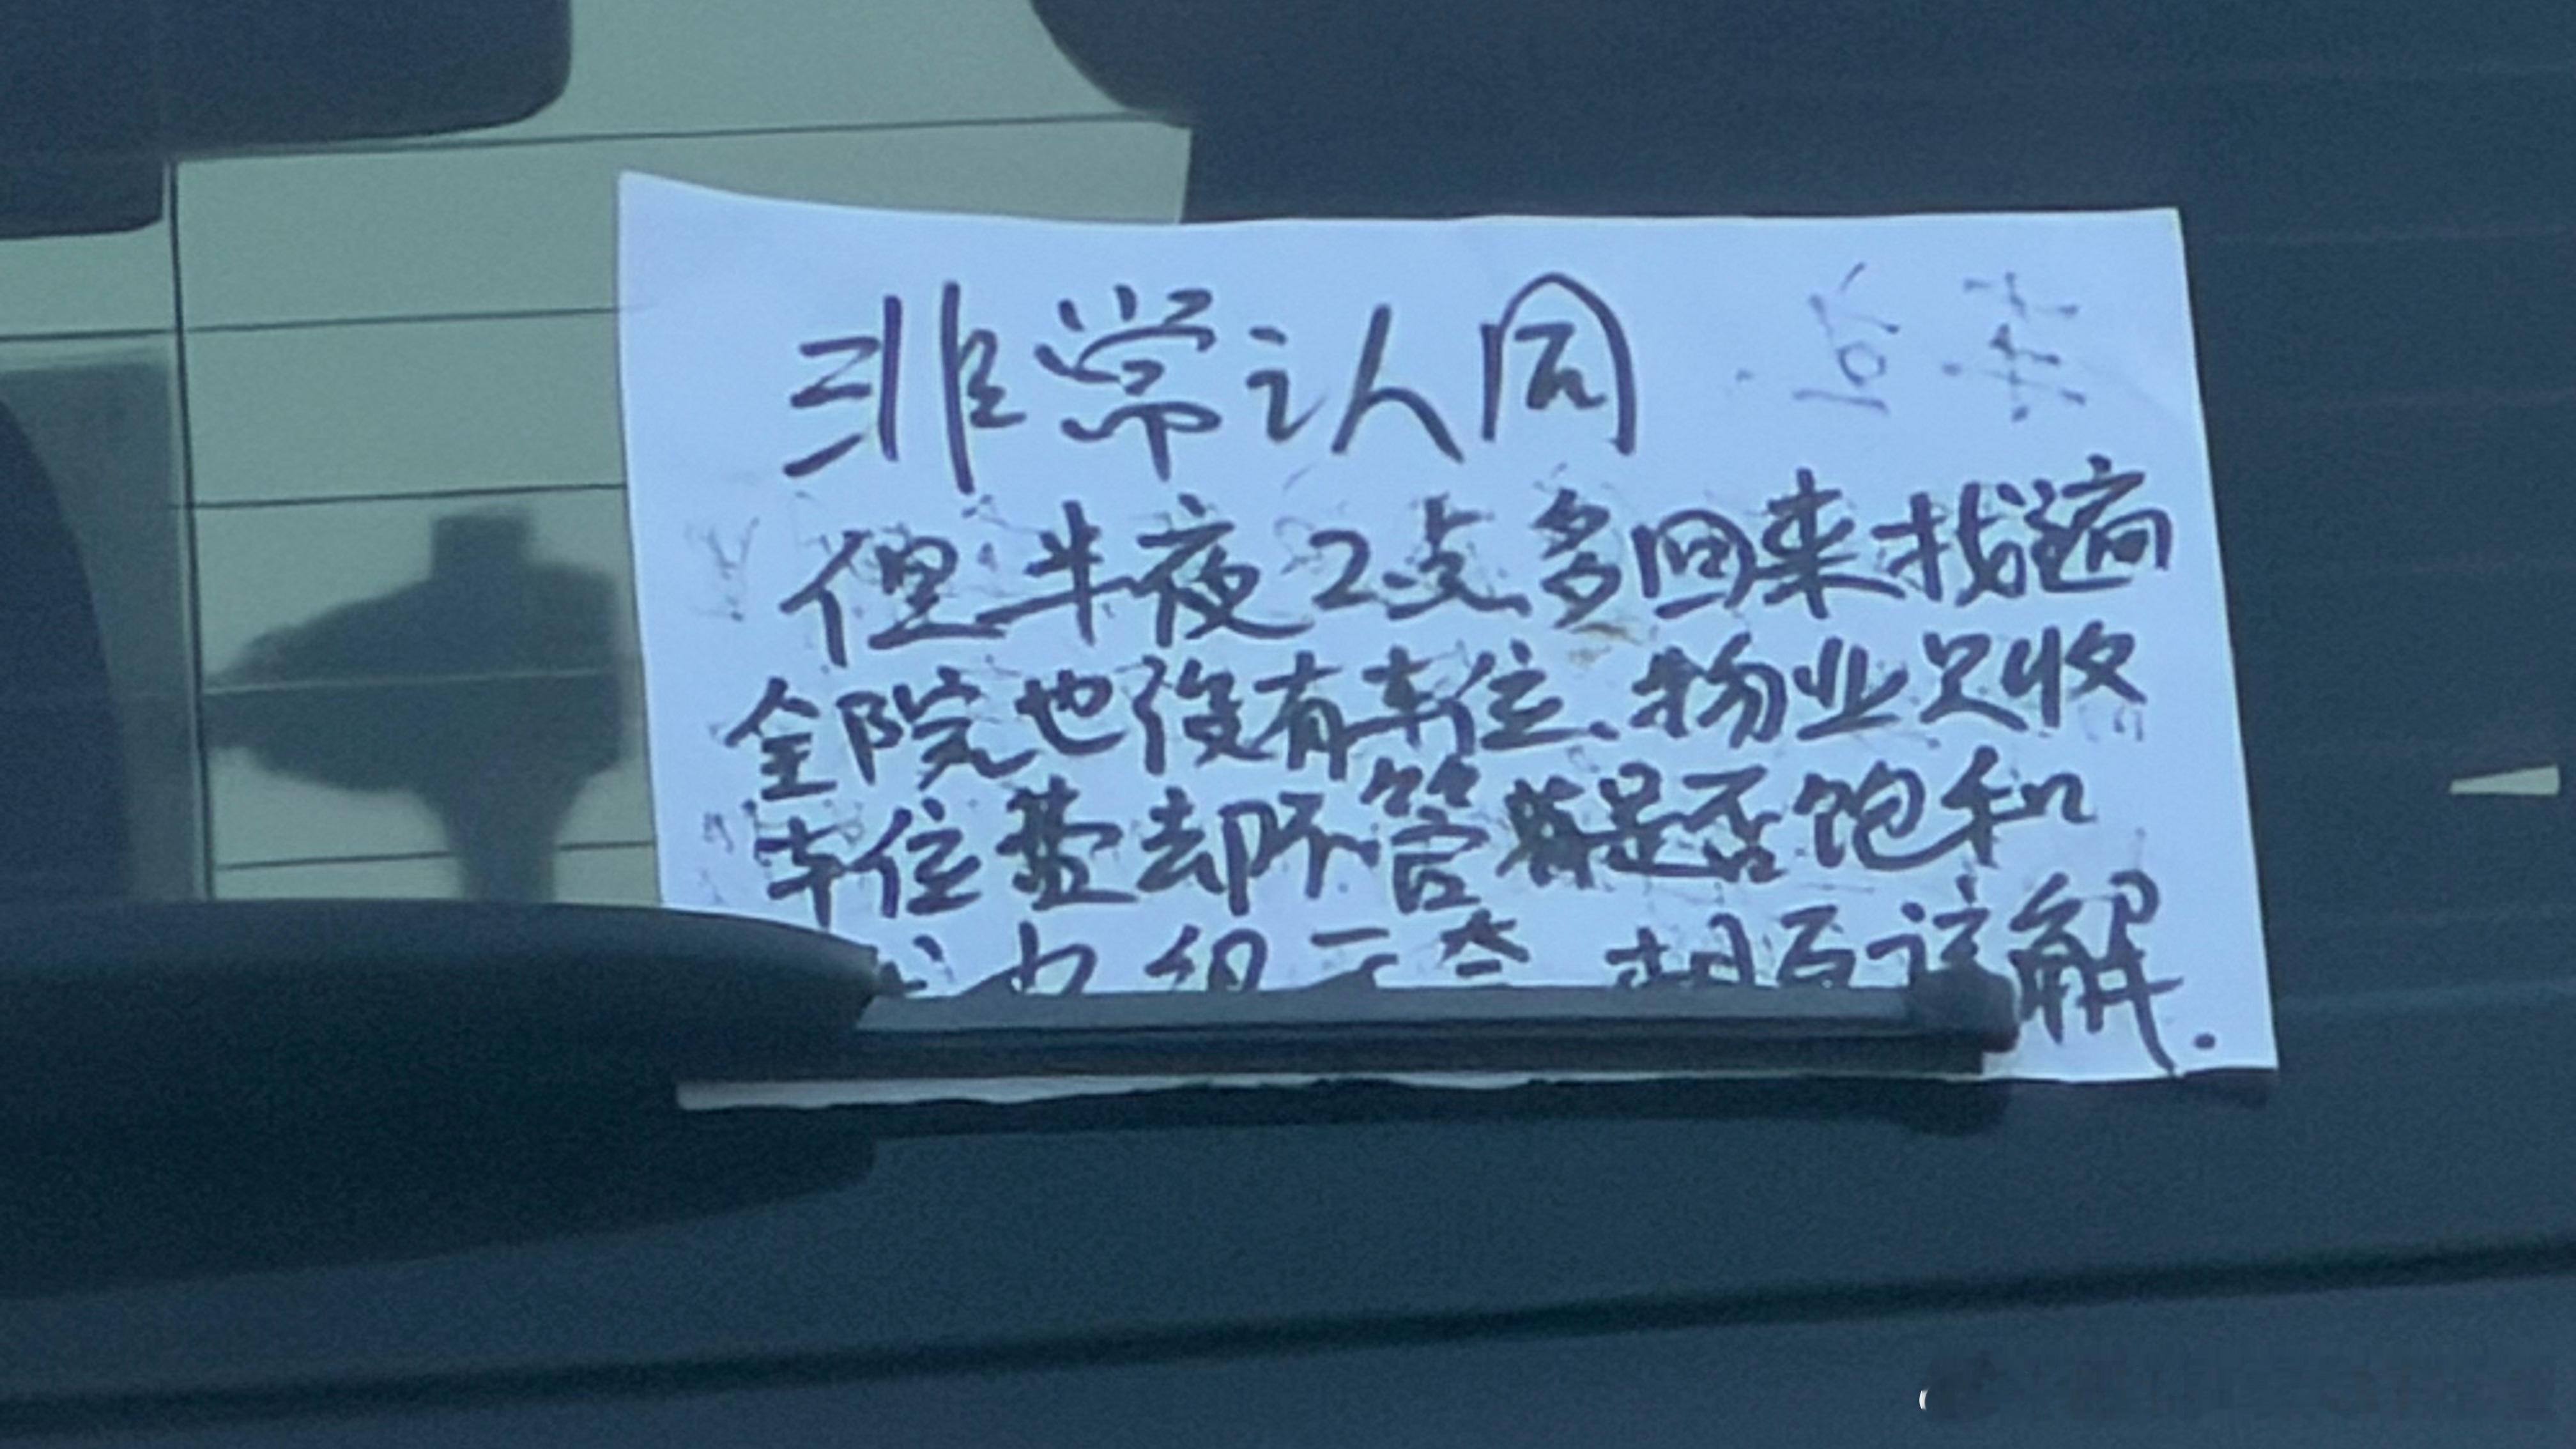 非常认同
但半夜2点多回来找遍
全院也没有车位.物业只收
车位费却不管是否饱和
我也很无奈.相互谅解.